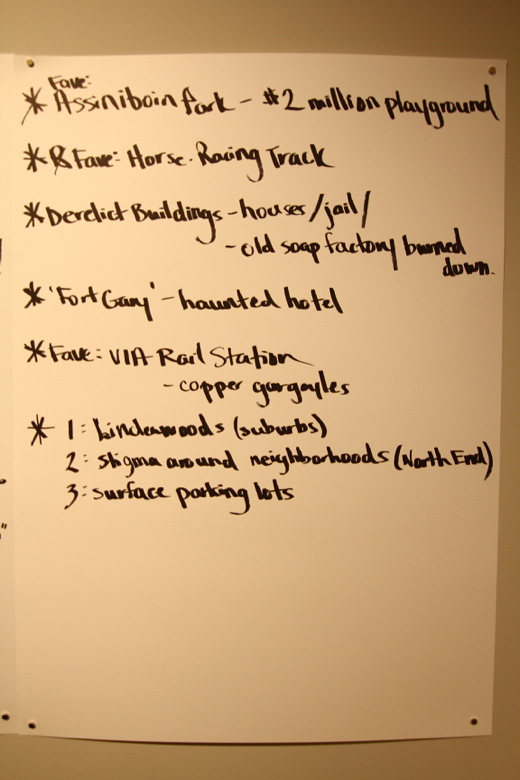 Fave:
* Assiniboin Park - $2 million playground
* Fave: Horse. Racing Track
* Derelict Buildings - houses/jail/
- old soap factory burned
down.
* 'Fort Gary' - haunted hotel
* Fave: VIA Rail Station
- copper gargoyles
* 1: Lindenwoods (suburbs)
2: stigma around neighborhoods (North End)
3: surface parking lots